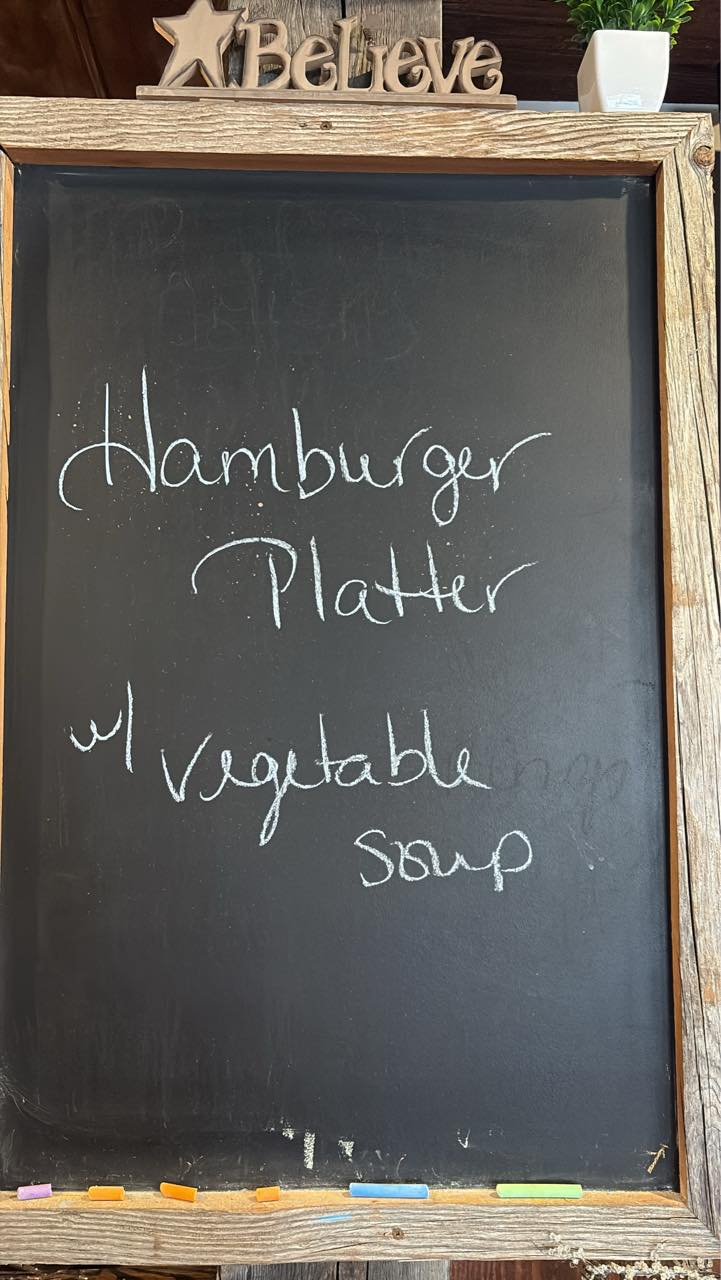 Believe
Hamburger
Platter
w/ vegetable
soup